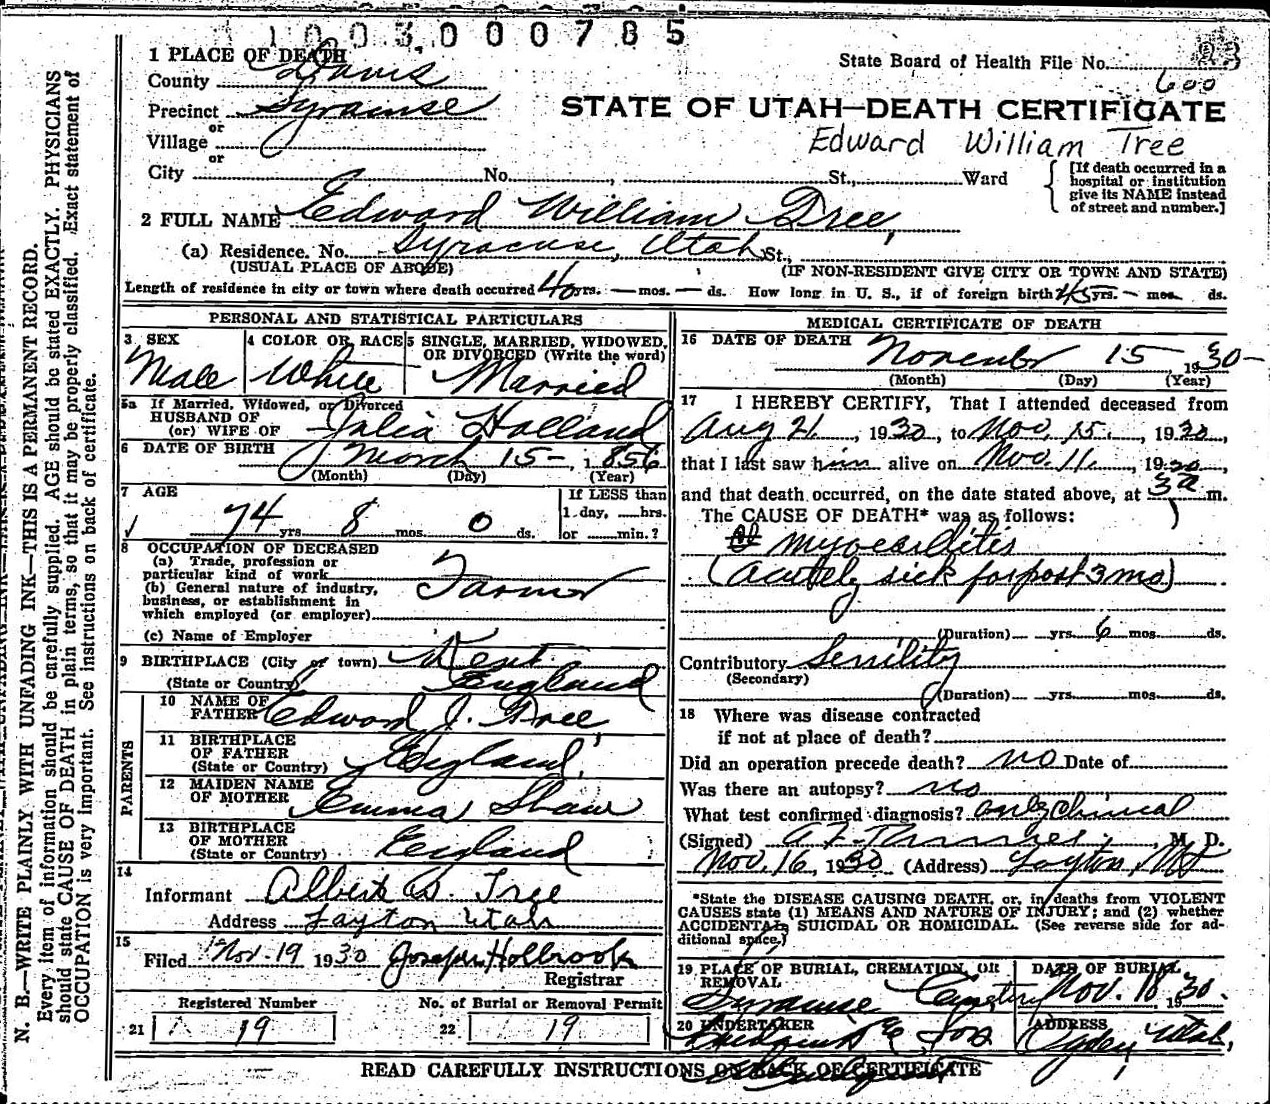 1003000785
1 PLACE OF DEATH
County Davis
State Board of Health File No. 600
Precinct Syracuse
STATE OF UTAH—DEATH CERTIFICATE
or
Village
Edward William Tree
or
City No. St., Ward
[If death occurred in a hospital or institution give its NAME instead of street and number.]
2 FULL NAME Edward William Tree,
(a) Residence. No. Syracuse, Utah St.,
(USUAL PLACE OF ABODE) (IF NON-RESIDENT GIVE CITY OR TOWN AND STATE)
Length of residence in city or town where death occurred 40 yrs. — mos. — ds. How long in U. S., if of foreign birth? 45 yrs. — mos. ds.
PERSONAL AND STATISTICAL PARTICULARS
3 SEX
Male
4 COLOR OR RACE
White
5 SINGLE, MARRIED, WIDOWED, OR DIVORCED (Write the word)
Married
5a If Married, Widowed, or Divorced
HUSBAND OF
(or) WIFE OF Julia Holland
6 DATE OF BIRTH March 15 – , 1856
(Month) (Day) (Year)
7 AGE
74 yrs 8 mos. 0 ds.
If LESS than
1 day, hrs.
or min.?
8 OCCUPATION OF DECEASED
(a) Trade, profession or
particular kind of work Farmer
(b) General nature of industry,
business, or establishment in
which employed (or employer)
(c) Name of Employer
9 BIRTHPLACE (City or town) Kent
(State or Country) England
PARENTS
10 NAME OF
FATHER Edward J. Tree,
11 BIRTHPLACE
OF FATHER
(State or Country) England,
12 MAIDEN NAME
OF MOTHER Emma Shaw
13 BIRTHPLACE
OF MOTHER
(State or Country) England
14
Informant Albert D. Tree
Address Layton Utah
15
Filed Nov. 19 1930 Joseph Holbrook
Registrar
Registered Number No. of Burial or Removal Permit
21 19 22 19
MEDICAL CERTIFICATE OF DEATH
16 DATE OF DEATH November 15 1930–
(Month) (Day) (Year)
17 I HEREBY CERTIFY, That I attended deceased from
Aug 21, 1930, to Nov. 15, 1930,
that I last saw him alive on Nov. 11, 1930,
and that death occurred, on the date stated above, at 3 a m.
The CAUSE OF DEATH* was as follows:
myocarditis
(acutely sick for past 3 mo)
(Duration) — yrs. 6 mos. ds.
Contributory Senility
(Secondary)
(Duration) — yrs. mos. ds.
18 Where was disease contracted
if not at place of death?
Did an operation precede death? no Date of
Was there an autopsy? no
What test confirmed diagnosis? only Clinical
(Signed) M. D.
Nov. 16, 1930 (Address) Layton, Ut
*State the DISEASE CAUSING DEATH, or, in deaths from VIOLENT
CAUSES state (1) MEANS AND NATURE OF INJURY; and (2) whether
ACCIDENTAL, SUICIDAL OR HOMICIDAL. (See reverse side for ad-
ditional space.)
19 PLACE OF BURIAL, CREMATION, OR
REMOVAL
Syracuse Cemetery
DATE OF BURIAL
Nov. 18 1930.
20 UNDERTAKER
& Sons
ADDRESS
Ogden, Utah,
READ CAREFULLY INSTRUCTIONS ON BACK OF CERTIFICATE
N. B.—WRITE PLAINLY WITH UNFADING INK—THIS IS A PERMANENT RECORD.
Every item of information should be carefully supplied. AGE should be stated EXACTLY. PHYSICIANS
should state CAUSE OF DEATH in plain terms, so that it may be properly classified. Exact statement of
OCCUPATION is very important. See instructions on back of certificate.